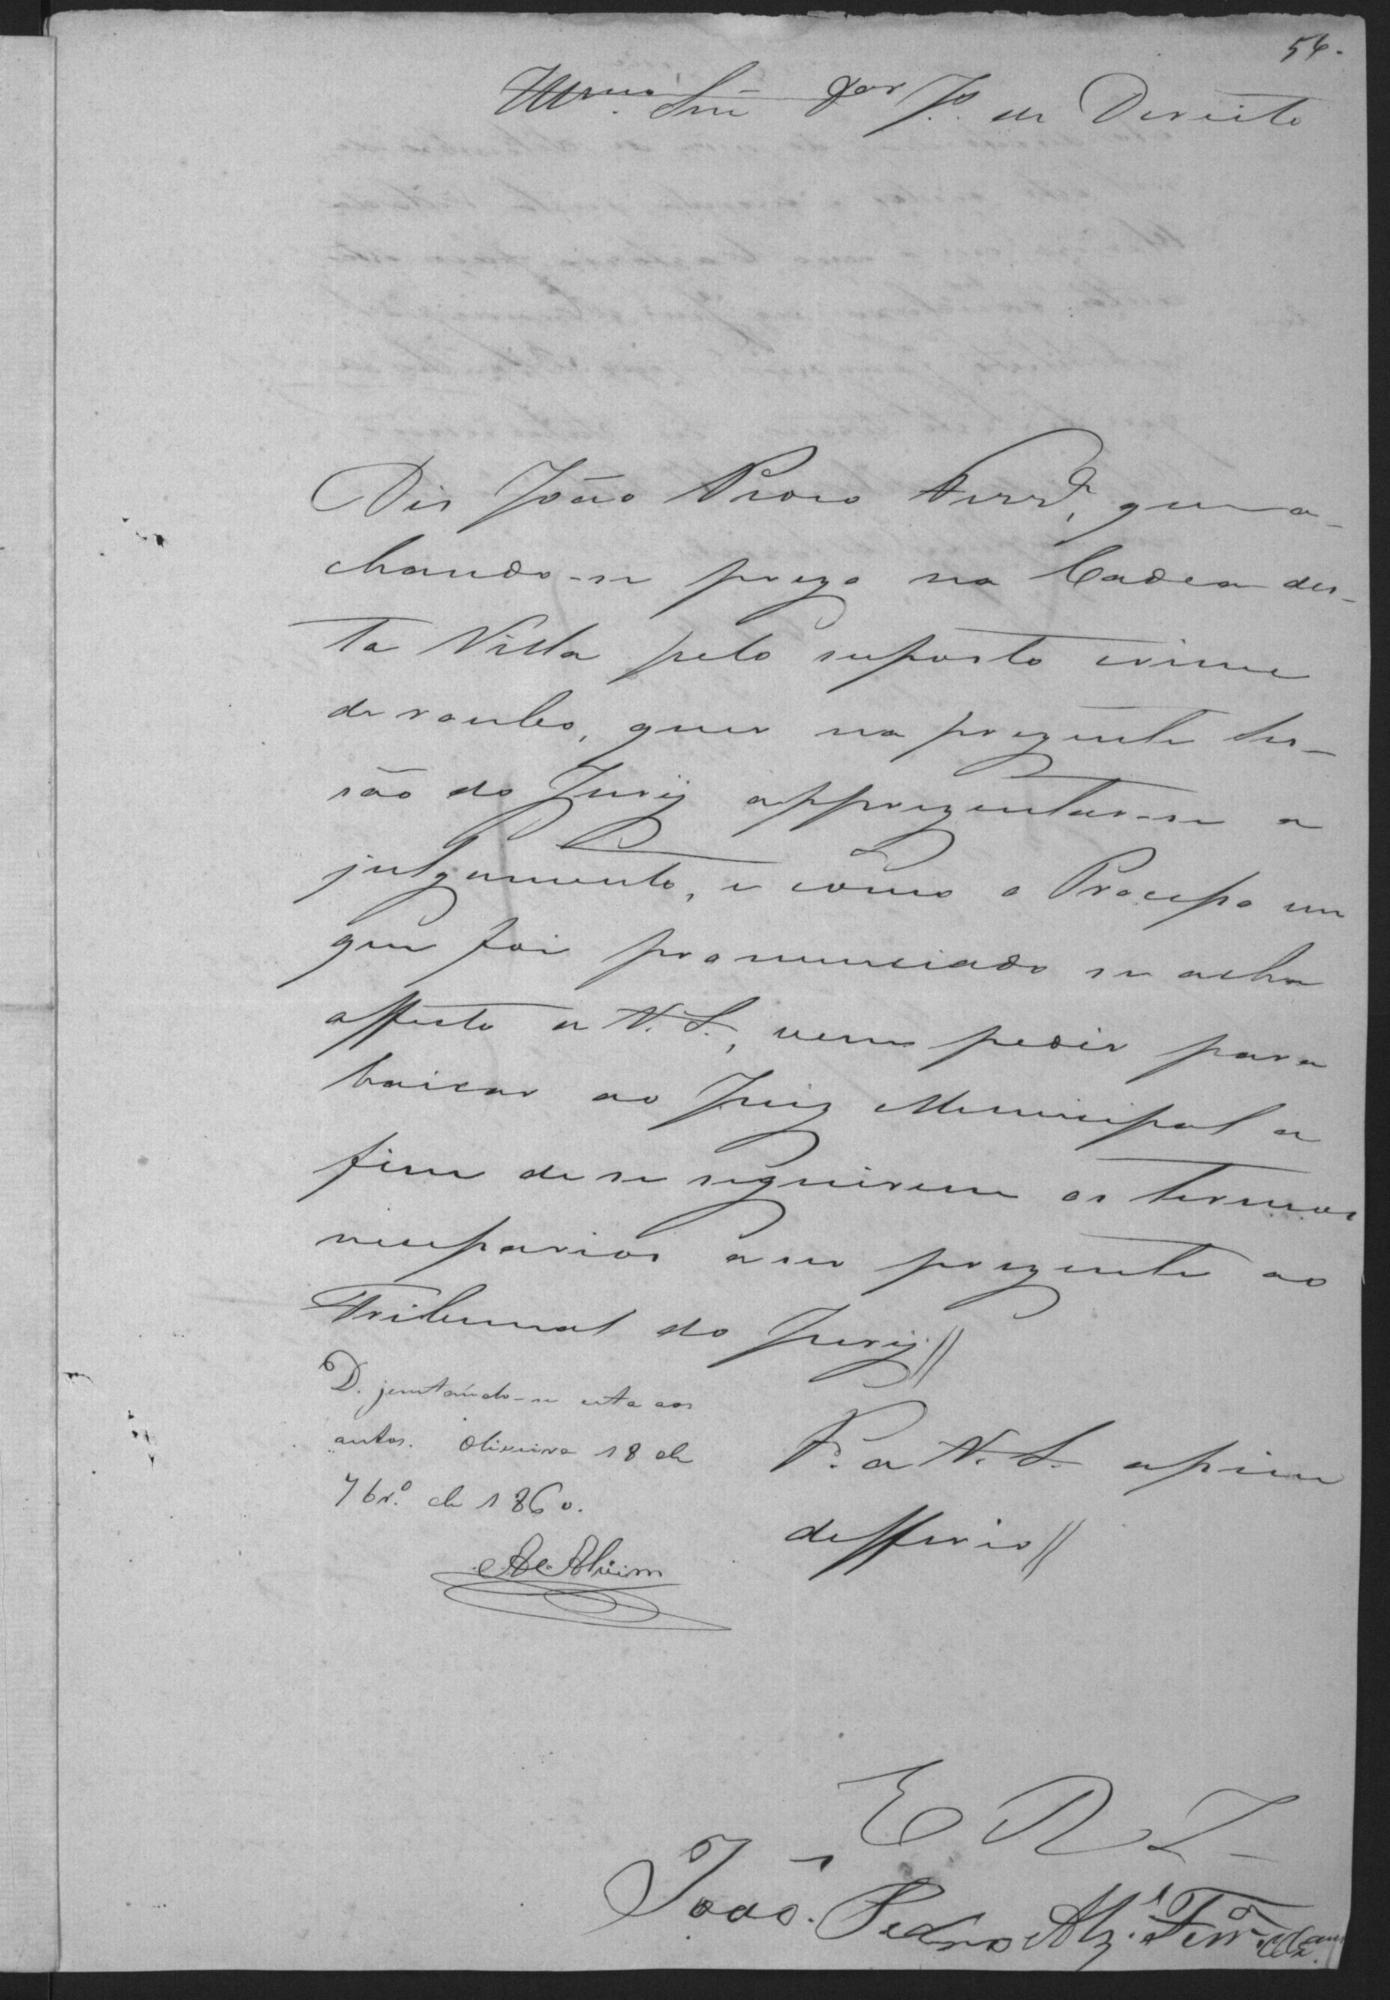 54.
Illmo. Snr. Dor. Jz. de Direito
Diz João Pedro Ferra., que a-
chando-se prezo na Cadea des-
ta Villa pelo suposto crime
de roubo, quer na prezente Ses-
são do Jury apprezentar-se a
julgamento, e como o Processo em
que foi pronunciado se acha
affecto a V. S., vem pedir para
baixar ao Juiz Municipal a
fim de se seguirem os termos
necessarios a ser prezente ao
Tribunal do Jury //
D. juntando-se esta aos
autos. Oliveira 18 de
7bro. de 1860.
Alvim
P. a V. S. assim
defferir //
E R
João Pedro Alz. Ferra.